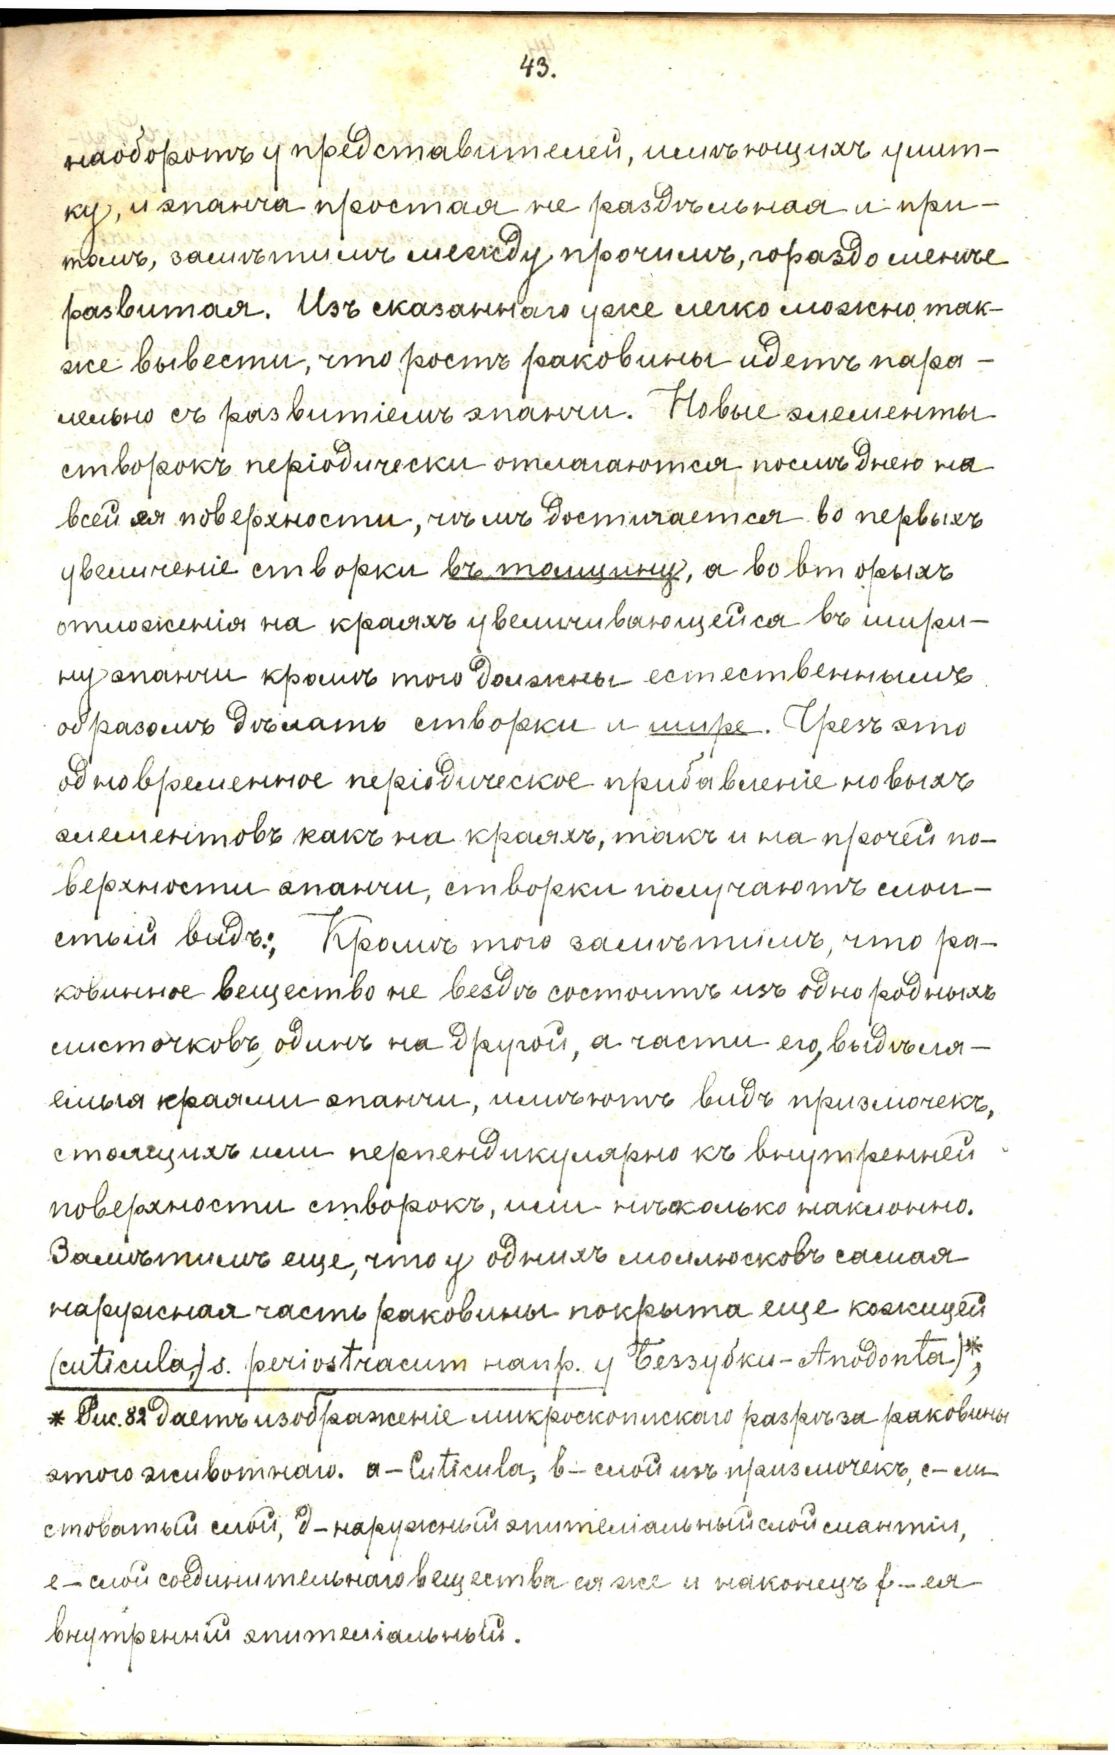 43.
наоборотъ у представителей, имѣющихъ улит-
ку, и эпанча простая не раздѣльная и при-
томъ, замѣтимъ между прочимъ, гораздо менѣе
развитая. Изъ сказаннаго уже легко можно так-
же вывести, что ростъ раковины идетъ пара-
лельно съ развитіемъ эпанчи. Новые элементы
створокъ періодически отлагаются послѣднею на
всей ея поверхности, чѣмъ достигается во первыхъ
увеличеніе створки въ толщину, а во вторыхъ
отложенія на краяхъ увеличивающейся въ шири-
ну эпанчи кромѣ того должны естественнымъ
образомъ дѣлать створки и шире. Чрезъ это
одновременное періодическое прибавленіе новыхъ
элементовъ какъ на краяхъ, такъ и на прочей по-
верхности эпанчи, створки получаютъ слои-
стый видъ; Кромѣ того замѣтимъ, что ра-
ковинное вещество не вездѣ состоитъ изъ однородныхъ
листочковъ, одинъ на другой, а части его, выдѣля-
емыя краями эпанчи, имѣютъ видъ призмочекъ,
стоящихъ или перпендикулярно къ внутренней
поверхности створокъ, или нѣсколько наклонно.
Замѣтимъ еще, что у однихъ моллюсковъ самая
наружная часть раковины покрыта еще кожицей
(cuticula,) s. periostracum напр. у Беззубки - Anodonta)*,
* Рис. 82 даетъ изображеніе микроскопискаго разрѣза раковины
этого животнаго. a - Cuticula, b - слой изъ призмочекъ, c - ли-
стоватый слой, d - наружный эпителіальный слой мантіи,
e - слой соединительнаго вещества ея же и наконецъ f - ея
внутренній эпителіальный.